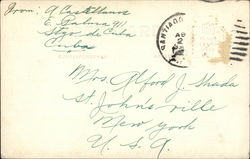 From: A Castellanos
E. Palma 911
Stgo. de Cuba
Cuba
SANTIAGO
Mrs. Alford J. Shada
St. Johnsville
New York
U. S. A.